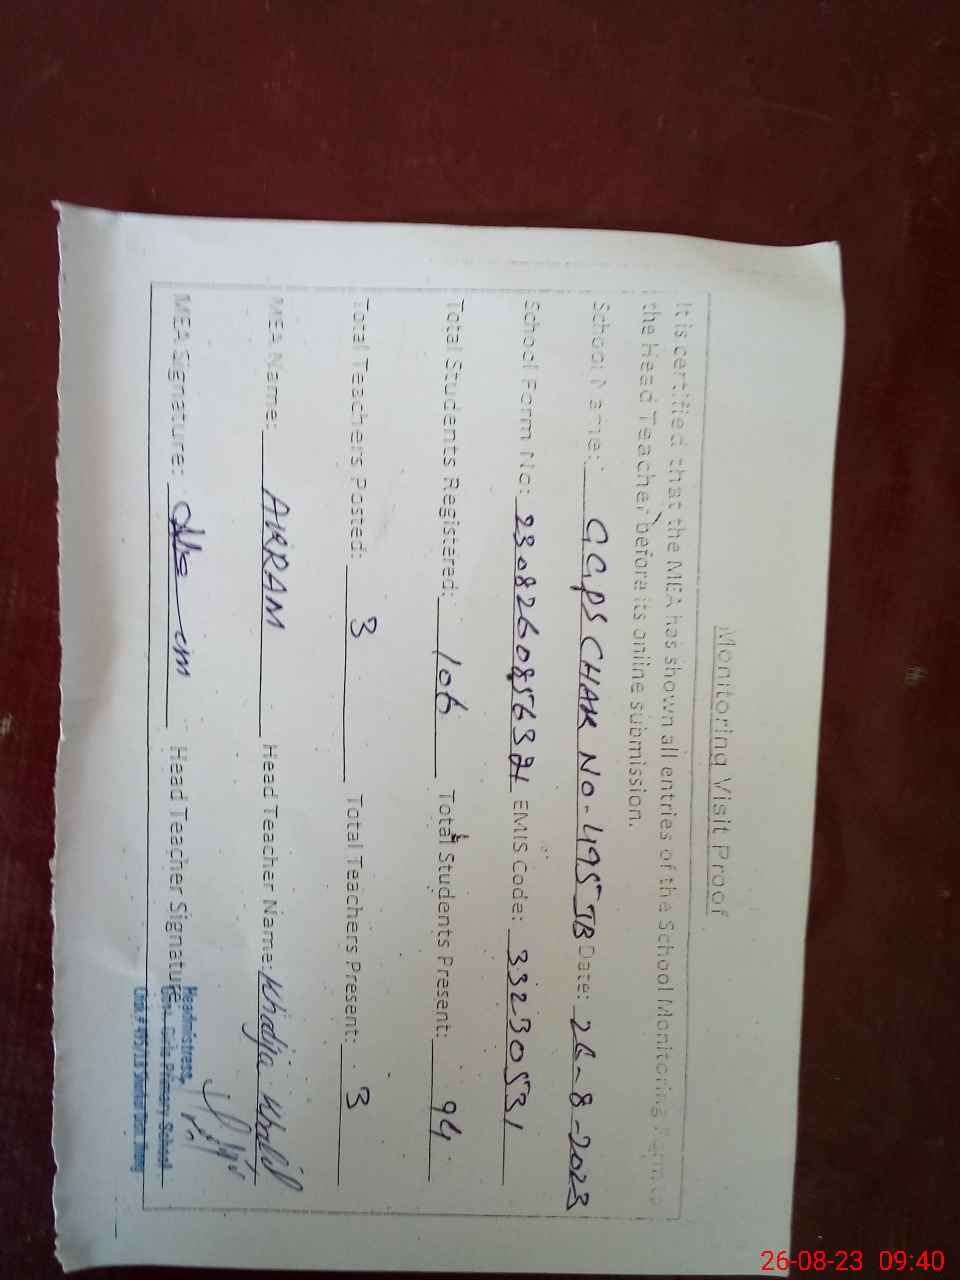 Monitoring Visit Proof
It is certified that the MEA has shown all entries of the School Monitoring Form to
the Head Teacher before its online submission.
School Name: GGPS CHAK NO-495 JB Date: 26-8-2023
School Form No: EMIS Code: 33230531
Total Students Registered: 106 Total Students Present: 94
Total Teachers Posted: 3 Total Teachers Present: 3
MEA Name: AKRAM Head Teacher Name: Khadija Khalid
MEA Signature: Head Teacher Signature:
Headmistress,
Govt. Girls Primary School
26-08-23 09:40